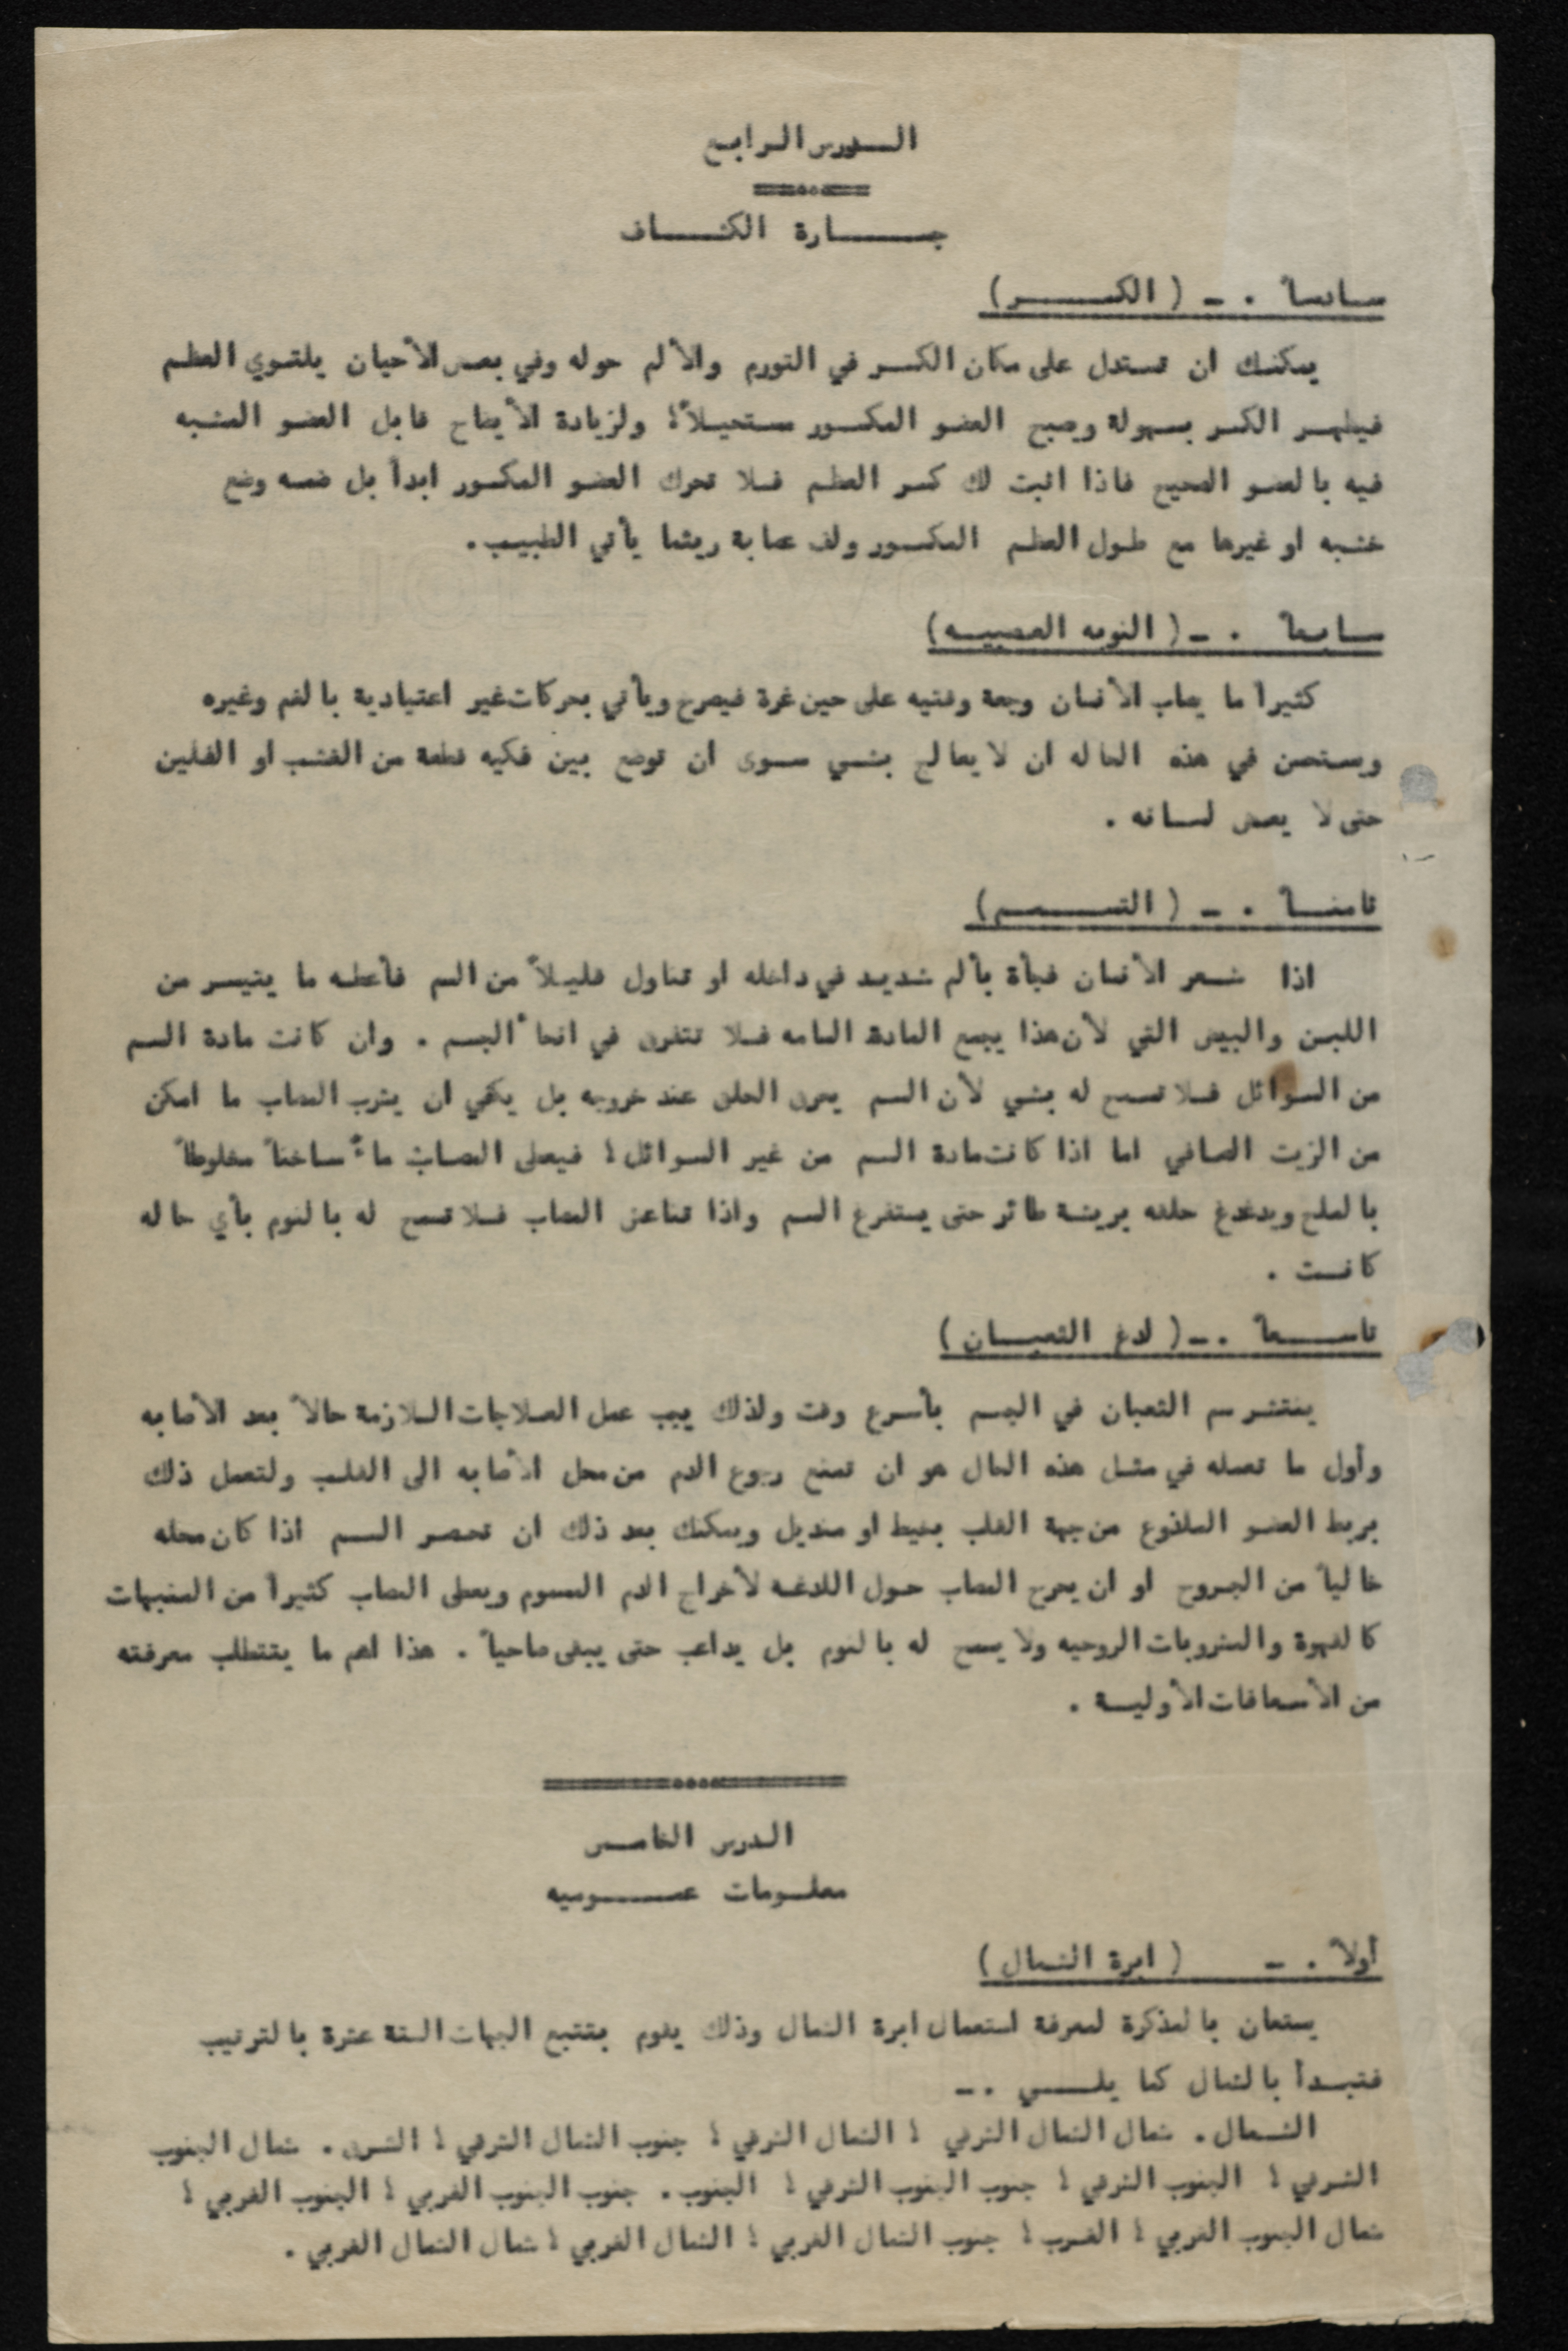 الدرس الرابع
جارة الكشاف
سادساً . ــ ( الكسر )
يمكنك ان تستدل على مكان الكسر في التورم والألم حوله وفي بعض الأحيان يلتوي العظم
فيظهر الكسر بسهولة ويصبح العضو المكسور مستحيلاً؛ ولزيادة الأيضاح قابل العضو المشبه
فيه بالعضو الصحيح فاذا اثبت لك كسر العظم فلا تحرك العضو المكسور ابداً بل ضعه وضع
خشبه او غيرها مع طول العظم المكسور ولف عصابة ريثما يأتي الطبيب .
سابعاً . ــ ( النوبه العصبيه )
كثيراً ما يصاب الأنسان وجعة وفتيه على حين غرة فيصرخ ويأتي بحركات غير اعتيادية بالفم وغيره
ويستحسن في هذه الحاله ان لا يعالج بشي سوى ان توضع بين فكيه قطعة من الخشب او الفلين
حتى لا يعض لسانه .
ثامناً . ــ ( التسمم )
اذا شعر الأنسان فجأة بألم شديد في داخله او تناول قليلاً من السم فأعطه ما يتيسر من
اللبن والبيض الني لأن هذا يجمع المادة السامه فلا تتفرق في انحاء الجسم . وان كانت مادة السم
من السوائل فلا تسمح له بشي لأن السم يحرق الحلق عند خروجه بل يكفي ان يشرب المصاب ما امكن
من الزيت الصافي اما اذا كانت مادة السم من غير السوائل ؛ فيعطى المصاب ماءً ساخناً مخلوطاً
بالملح ويدغدغ حلقه بريشة طائر حتى يستفرغ السم واذا تناعس المصاب فلا تسمح له بالنوم بأي حاله
كانت .
تاسعاً . ــ ( لدغ الثعبان )
ينتشر سم الثعبان في الجسم بأسرع وقت ولذلك يجب عمل العلاجات اللازمة حالاً بعد الأصابه
وأول ما تعمله في مثل هذه الحال هو ان تمنع رجوع الدم من محل الأصابه الى القلب ولتعمل ذلك
بربط العضو الملذوع من جهة القلب بخيط او منديل ويمكنك بعد ذلك ان تحصر السم اذا كان محله
خالياً من الجروح او ان يجرح المصاب حول اللدغه لأخراج الدم المسموم ويعطى المصاب كثيراً من المنبهات
كالقهوة والمشروبات الروحيه ولا يسمح له بالنوم بل يداعب حتى يبقى صاحياً . هذا اهم ما يتتطلب معرفته
من الأسعافات الأوليـة .
الدرس الخامس
معلومات عموميه
أولاً . ــ ( ابرة الشمال )
يستعان بالمذكرة لمعرفة استعمال ابرة الشمال وذلك يقوم بتتبع الجهات الستة عشرة بالترتيب
فتبدأ بالشمال كما يلي . ــ
الشمال . شمال الشمال الشرقي ؛ الشمال الشرقي ؛ جنوب الشمال الشرقي ؛ الشرق . شمال الجنوب
الشرقي ؛ الجنوب الشرقي ؛ جنوب الجنوب الشرقي ؛ الجنوب . جنوب الجنوب الغربي ؛ الجنوب الغربي ؛
شمال الجنوب الغربي ؛ الغرب ؛ جنوب الشمال الغربي ؛ الشمال الغربي ؛ شمال الشمال الغربي .